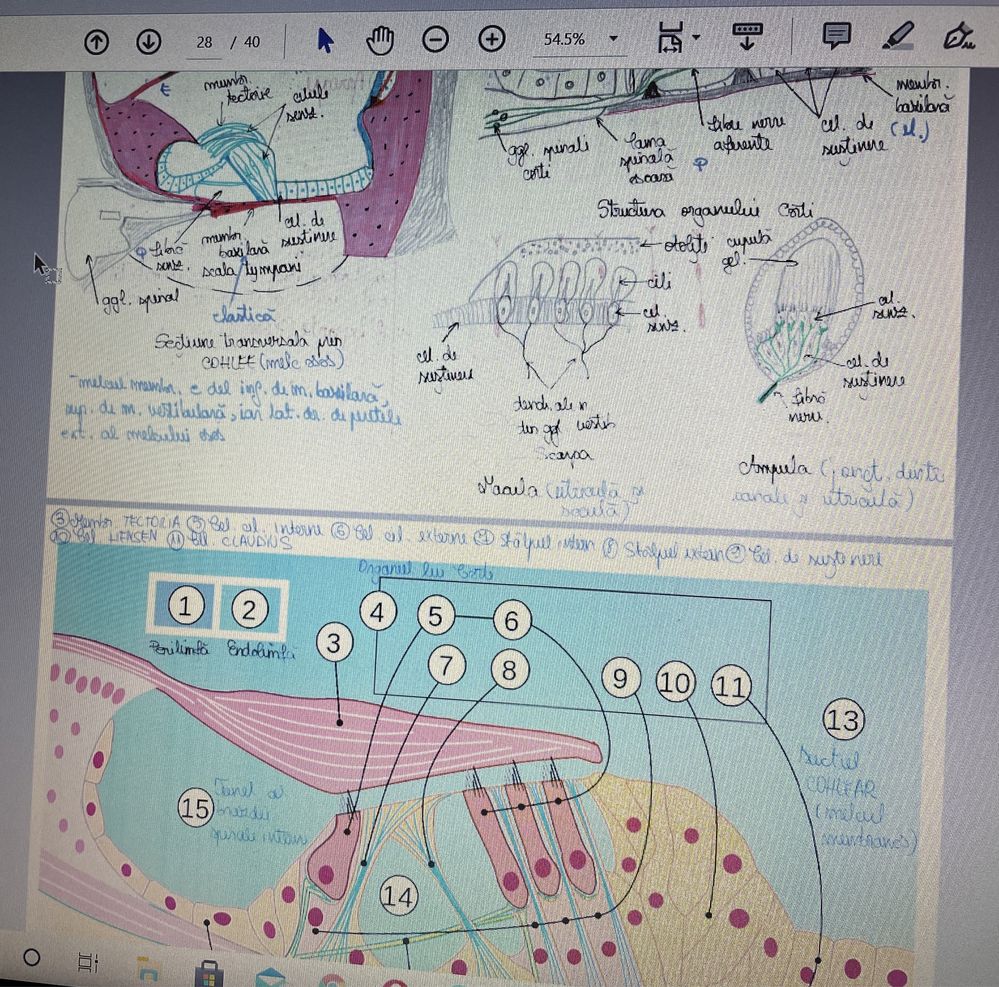 28 / 40
54.5%
membr.
tectorie
celule
senz.
fibră
senz.
membr.
bazilară
cel. de
susținere
scala tympani
ggl. spiral
elastică
Secțiune transversală prin
COHLEE (melc osos)
-melcul membr. e del inf. de m. bazilară,
sup. de m. vestibulară, iar lat. de peretele
ext. al melcului osos
membr.
bazilară
(el.)
ggl. spiral
corti
lama
spirală
osoasă
fibre nerv
aferente
cel. de
susținere
Structura organului Corti
otoliți
cili
cel.
senz.
cel. de
susținere
dendr. ale n.
din ggl vestib
Scarpa
Macula (utriculă și
saculă)
cupulă
gel.
cel.
senz.
cel. de
susținere
fibră
nerv.
Ampula (joncț. dintre
canale și utriculă)
③ Membr TECTORIA ⑤ Cel cil. interne ⑥ Cel cil. externe ⑦ Stâlpul intern ⑧ Stâlpul extern ⑨ Cel. de susținere
⑩ Cel HENSEN ⑪ Cel. CLAUDIUS
Organul lui Corti
1 2
Perilimfă Endolimfă
3 4 5 6
7 8 9 10 11
13
Ductul
COHLEAR
(melcul
membranos)
15
spirale intern
14